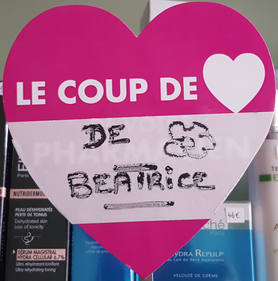 LE COUP DE
DE
BEATRICE
NUTRIDERMO
PEAU DÉSHYDRATÉE
PERTE DE TONUS
Dehydrated skin
Loss of tonicity
SÉRUM MAGISTRAL
HYDRA CELLULAR 6.7%
Ultra réhydratant tonifiant
Ultra rehydrating toning
46€
HYDRA REPULP
VELOUTÉ DE CRÈME